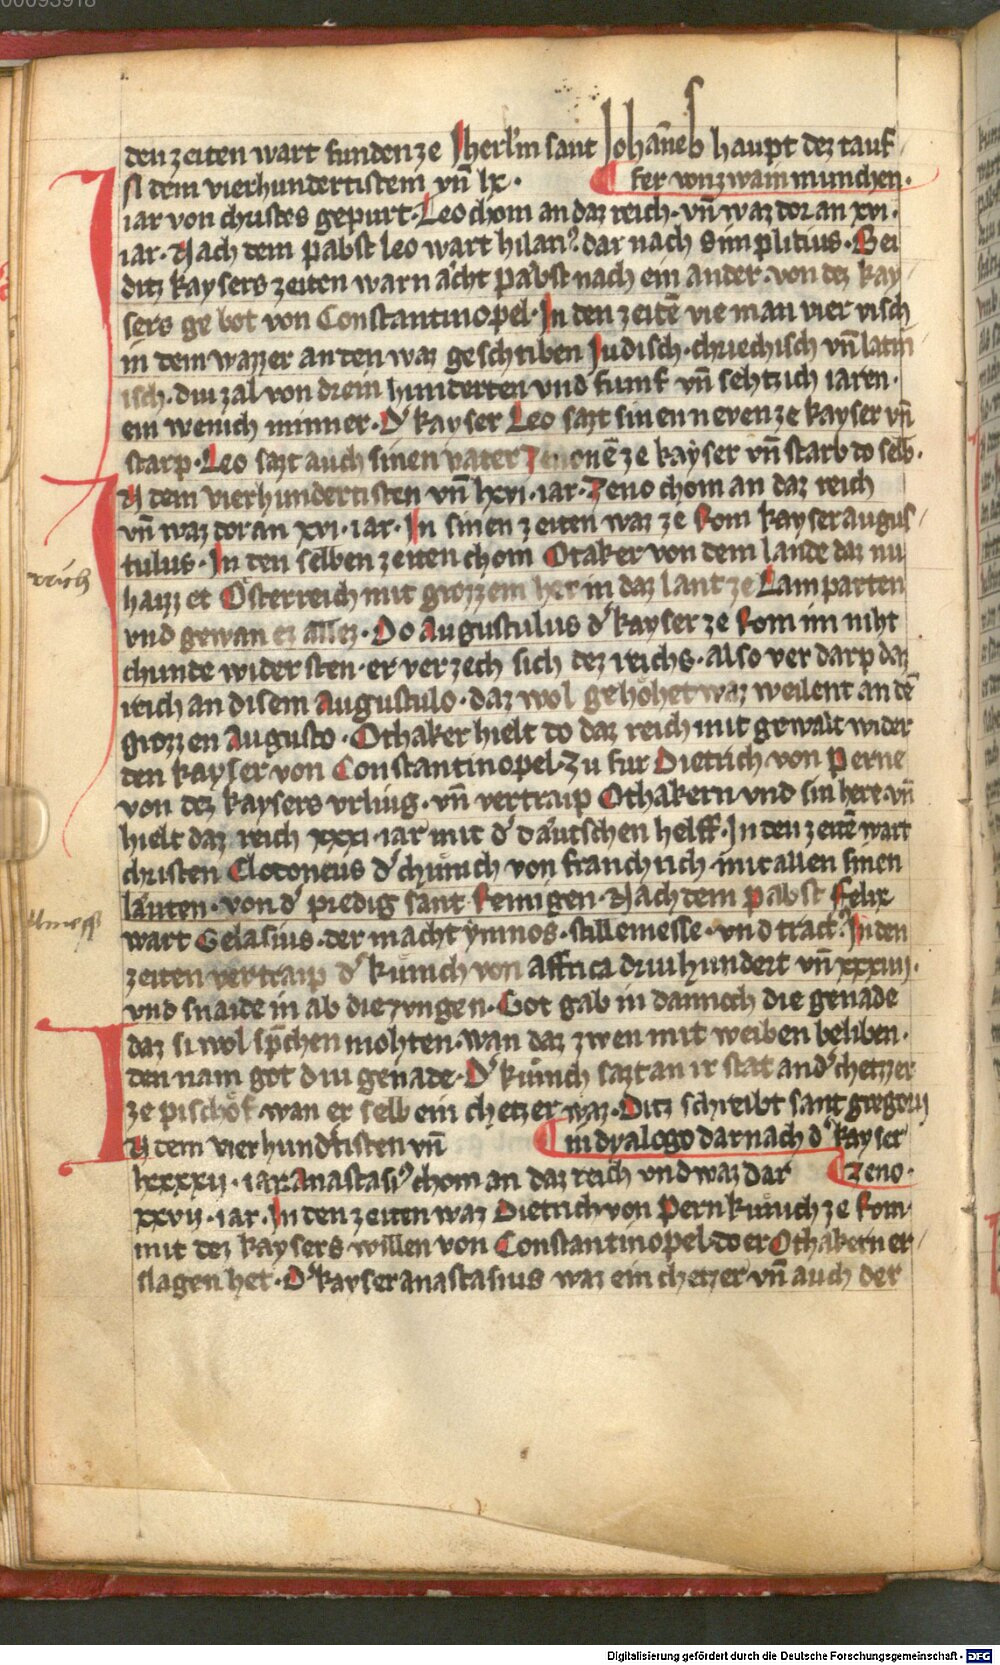 den zeiten wart funden ze Jherl'm sant Johañes haupt dez tauf
fer von zwain munchen.
N dem vierhundertistem vn̄ lx.
iar von christes gepurt. Leo chom an daz reich. vn̄ waz dor an xvi.
iar. Nach dem pabst leo wart hilari⁹. dar nach Simplitius. Bei
ditz kaysers zeiten warn acht pabst nach ein ander. von dez kay
sers gebot von Constantinopel. Jn den zeitē vie man vier visch
in dem wazzer an den waz geschriben Judisch. chriechisch vn̄ latin
isch. diu zal von drein hunderten vnd fumf vn̄ sehtzich iaren.
ein wenich minner. D' kayser Leo sazt sinen neven ze kayser vn̄
starp. Leo sazt auch sinen vater Zenonē ze kayser vn̄ starb do selb.
N dem vierhundertisten vn̄ lxxvi. iar. Zeno chom an daz reich
vn̄ waz dor an xvi. iar. Jn sinen zeiten waz ze Rom kayser augus
tulus. Jn den selben zeiten chom Otaker von dem lande daz nu
haizzet Österreich mit grozzem her in daz lant ze Lamparten
vnd gewan ez allez. Do Augustulus d' kayser ze Rom im niht
chunde widersten. er verzech sich dez reichs. also verdarp daz
reich an disem Augustulo. daz wol gehöhet waz weilent an dē
grozzen Augusto. Othaker hielt do daz reich mit gewalt wider
den kayser von Constantinopel. Zu fur Dietrich von Perne
von dez kaysers vrlaug. vn̄ vertraip Othakern vnd sin here. vn̄
hielt daz reich xxxi. iar mit d' däutschen helff. Jn den zeitē wart
christen Clotoneus d' chünich von franchrich. mit allen sinen
läuten. von d' predig sant Remigen. Nach dem pabst Felix
wart Gelasius. der macht ymnos. stillemesse. vnd tract⁹. Jn den
zeiten vertraip d' künich von affrica driuhundert vn̄ xxxiiij.
vnd snaide in ab die zvngen. Got gab in dannoch die genade
daz si wol sp̄chen mohten. wan daz zwen mit weiben beliben.
den nam got diu genade. D' künich sazt an ir stat and' chetzer
ze pischöf. wan er selb ein chetzer waz. Ditz schreibt sant gregorij
in dyalogo dar nach d' kayser
zeno.
N dem vierhund'tisten vn̄
lxxxxij. iar Anastasi⁹ chom an daz reich vnd waz dar
xxvij. iar. Jn den zeiten waz Dietrich von Pern künich ze Rom
mit dez kaysers willen von Constantinopel. do er Othakern er
slagen het. D' kayser anastasius waz ein chetzer vn̄ auch der
Digitalisierung gefördert durch die Deutsche Forschungsgemeinschaft - DFG